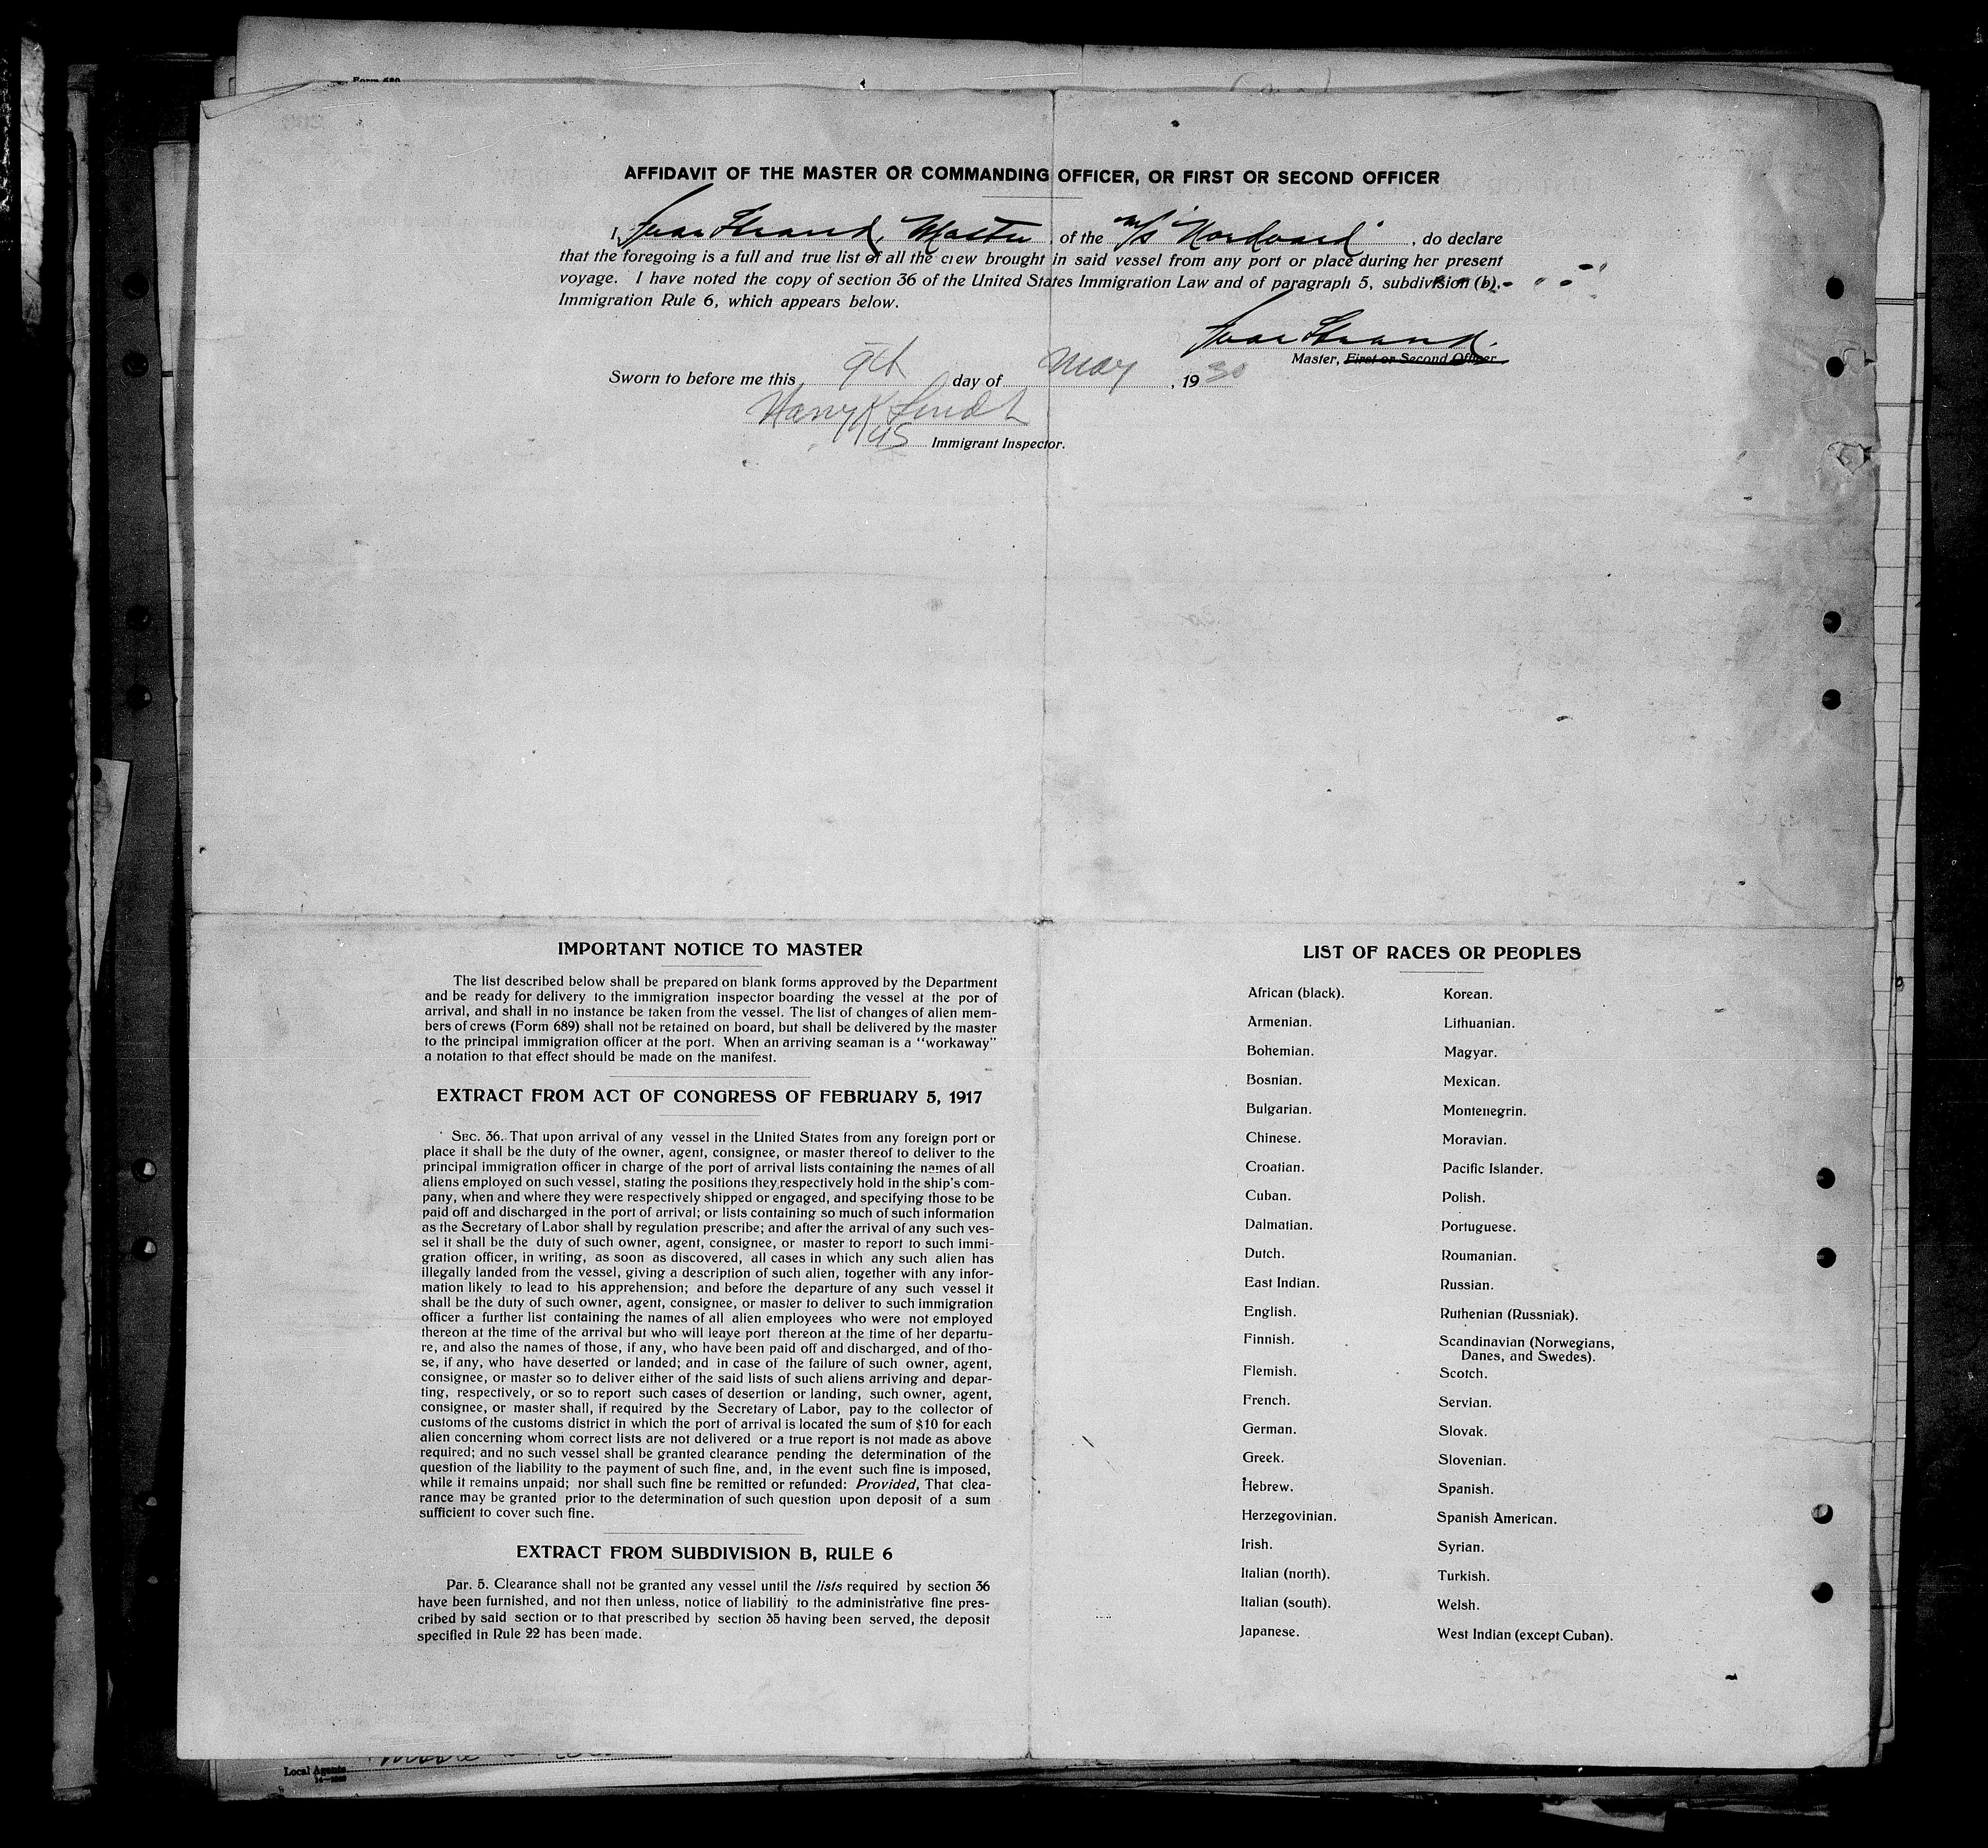 Form 689
AFFIDAVIT OF THE MASTER OR COMMANDING OFFICER, OR FIRST OR SECOND OFFICER
I, Ivar Strand, Master, of the M/S "Nordvard", do declare
that the foregoing is a full and true list of all the crew brought in said vessel from any port or place during her present
voyage. I have noted the copy of section 36 of the United States Immigration Law and of paragraph 5, subdivision (b),
Immigration Rule 6, which appears below.
Ivar Strand.
Master, First or Second Officer
Sworn to before me this 9th day of May, 1930
Harry K
US Immigrant Inspector.
IMPORTANT NOTICE TO MASTER
The list described below shall be prepared on blank forms approved by the Department
and be ready for delivery to the immigration inspector boarding the vessel at the por of
arrival, and shall in no instance be taken from the vessel. The list of changes of alien mem-
bers of crews (Form 689) shall not be retained on board, but shall be delivered by the master
to the principal immigration officer at the port. When an arriving seaman is a "workaway"
a notation to that effect should be made on the manifest.
EXTRACT FROM ACT OF CONGRESS OF FEBRUARY 5, 1917
SEC. 36. That upon arrival of any vessel in the United States from any foreign port or
place it shall be the duty of the owner, agent, consignee, or master thereof to deliver to the
principal immigration officer in charge of the port of arrival lists containing the names of all
aliens employed on such vessel, stating the positions they respectively hold in the ship's com-
pany, when and where they were respectively shipped or engaged, and specifying those to be
paid off and discharged in the port of arrival; or lists containing so much of such information
as the Secretary of Labor shall by regulation prescribe; and after the arrival of any such ves-
sel it shall be the duty of such owner, agent, consignee, or master to report to such immi-
gration officer, in writing, as soon as discovered, all cases in which any such alien has
illegally landed from the vessel, giving a description of such alien, together with any infor-
mation likely to lead to his apprehension; and before the departure of any such vessel it
shall be the duty of such owner, agent, consignee, or master to deliver to such immigration
officer a further list containing the names of all alien employees who were not employed
thereon at the time of the arrival but who will leave port thereon at the time of her departu-
re, and also the names of those, if any, who have been paid off and discharged, and of tho-
se, if any, who have deserted or landed; and in case of the failure of such owner, agent,
consignee, or master so to deliver either of the said lists of such aliens arriving and depar-
ting, respectively, or so to report such cases of desertion or landing, such owner, agent,
consignee, or master shall, if required by the Secretary of Labor, pay to the collector of
customs of the customs district in which the port of arrival is located the sum of $10 for each
alien concerning whom correct lists are not delivered or a true report is not made as above
required; and no such vessel shall be granted clearance pending the determination of the
question of the liability to the payment of such fine, and, in the event such fine is imposed,
while it remains unpaid; nor shall such fine be remitted or refunded: Provided, That clea-
rance may be granted prior to the determination of such question upon deposit of a sum
sufficient to cover such fine.
EXTRACT FROM SUBDIVISION B, RULE 6
Par. 5. Clearance shall not be granted any vessel until the lists required by section 36
have been furnished, and not then unless, notice of liability to the administrative fine pres-
cribed by said section or to that prescribed by section 35 having been served, the deposit
specified in Rule 22 has been made.
LIST OF RACES OR PEOPLES
African (black).
Armenian.
Bohemian.
Bosnian.
Bulgarian.
Chinese.
Croatian.
Cuban.
Dalmatian.
Dutch.
East Indian.
English.
Finnish.
Flemish.
French.
German.
Greek.
Hebrew.
Herzegovinian.
Irish.
Italian (north).
Italian (south).
Japanese.
Korean.
Lithuanian.
Magyar.
Mexican.
Montenegrin.
Moravian.
Pacific Islander.
Polish.
Portuguese.
Roumanian.
Russian.
Ruthenian (Russniak).
Scandinavian (Norwegians,
Danes, and Swedes).
Scotch.
Servian.
Slovak.
Slovenian.
Spanish.
Spanish American.
Syrian.
Turkish.
Welsh.
West Indian (except Cuban).
Local Agents